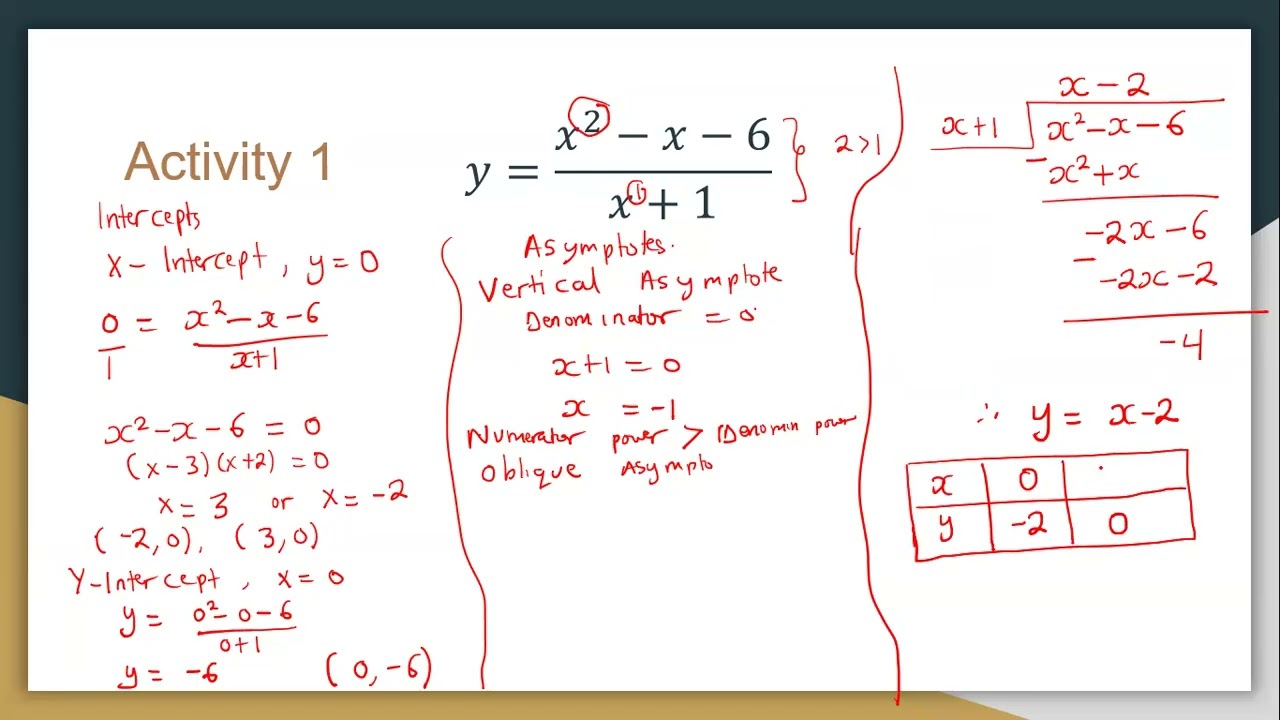 Activity 1
y = (x² − x − 6) / (x¹ + 1) } 2 > 1
Intercepts
x - Intercept , y = 0
0/1 = (x² - x - 6) / (x+1)
x² - x - 6 = 0
(x - 3)(x + 2) = 0
x = 3 or x = -2
(-2, 0), (3, 0)
Y-Intercept , x = 0
y = (0² - 0 - 6) / (0+1)
y = -6 (0, -6)
Asymptotes.
Vertical Asymptote
Denominator = 0
x+1 = 0
x = -1
Numerator power > Denomin power
Oblique Asympto
x - 2
x+1 | x² - x - 6
- x² + x
-2x - 6
- -2x - 2
-4
∴ y = x - 2
x | 0 |
y | -2 | 0